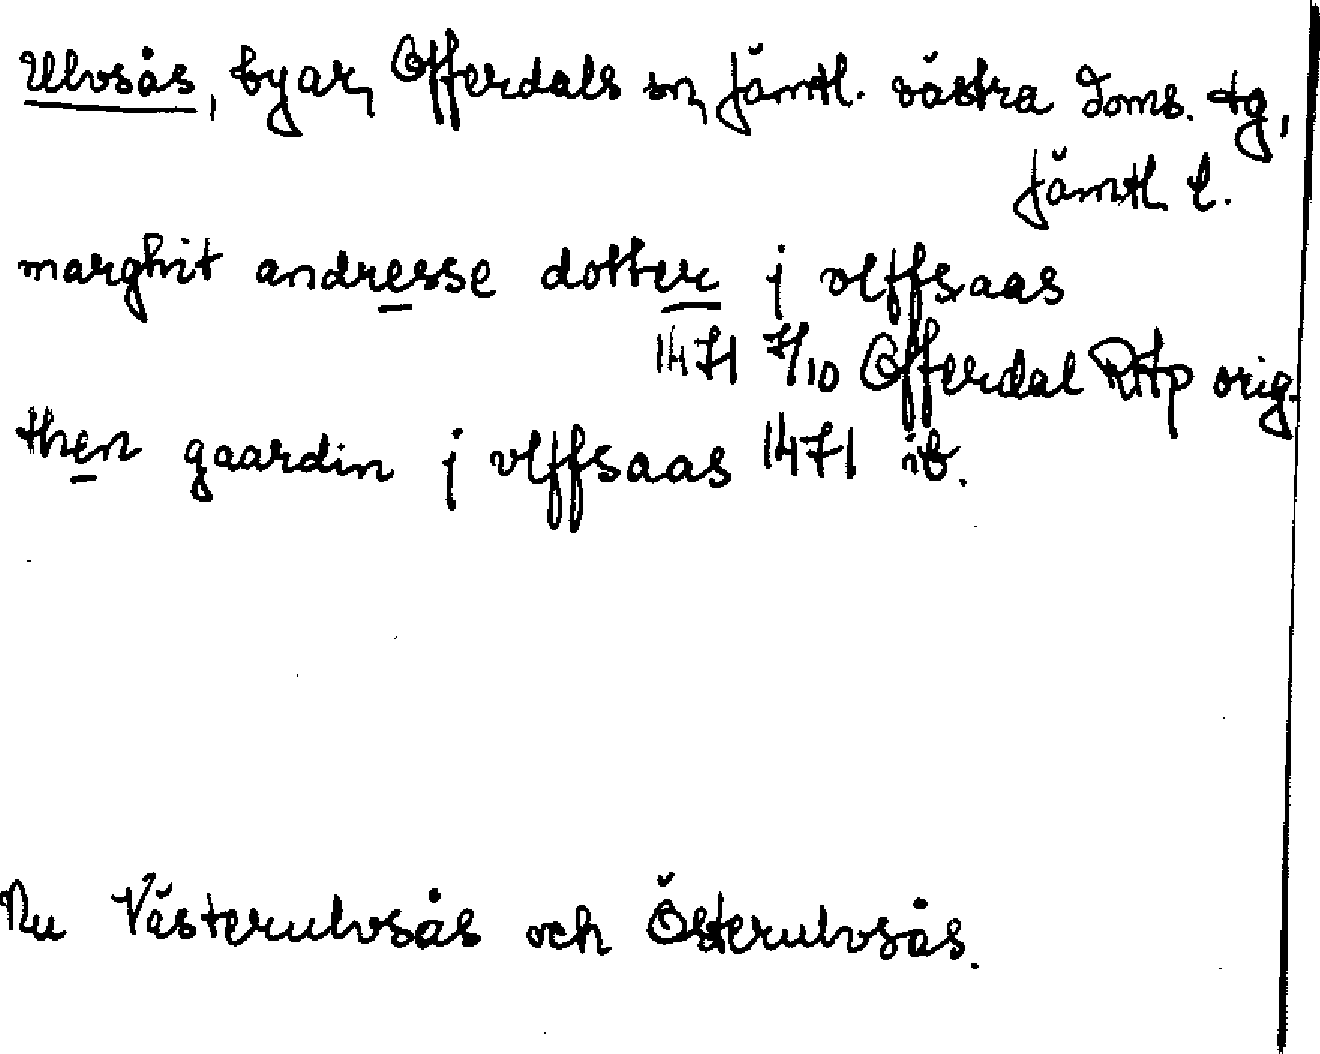 Ulvsås, byar, Offerdals sn, Jämtl. västra doms. tg,
Jämtl. l.
marghit andresse dotter j vlffsaas
1471 7/10 Offerdal RAp orig.
then gaardin j vlffsaas 1471 ib.
Nu Västerulvsås och Österulvsås.